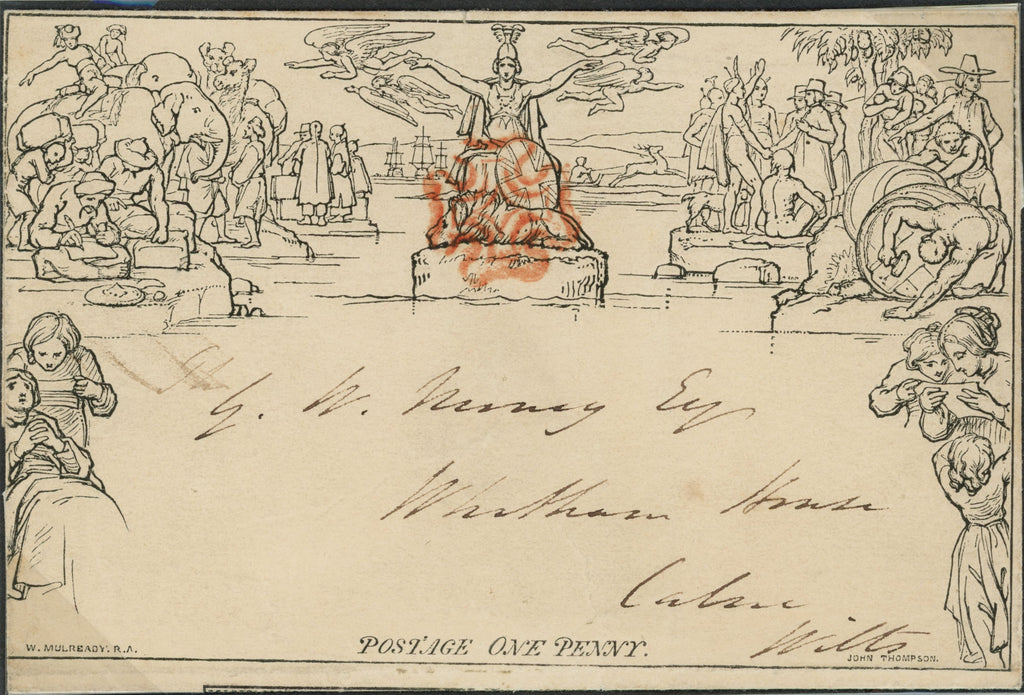 G. W. Money Esq
Whetham House
Calne
Wilts
W. MULREADY. R.A.
POSTAGE ONE PENNY.
JOHN THOMPSON.